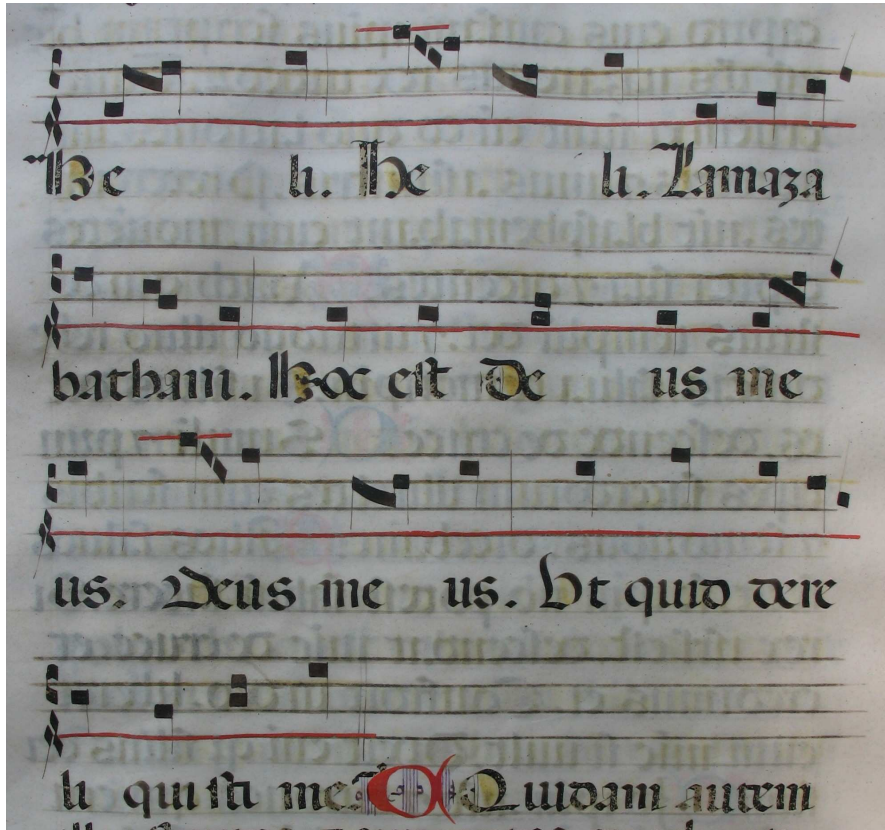 He li. He li. Lamaza
bathani. Hoc est De us me
us. Deus me us. Ut quid dere
li qui sti me. Quidam autem